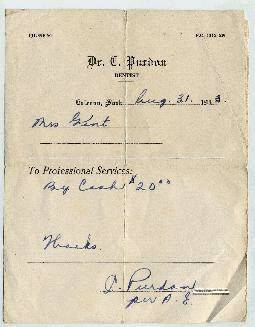 Dr. C. Purdon
DENTIST
Sask. Aug. 31. 19
Mrs
To Professional Services:
By Cash $20⁰⁰
Thanks.
C. Purdon
per A. E.